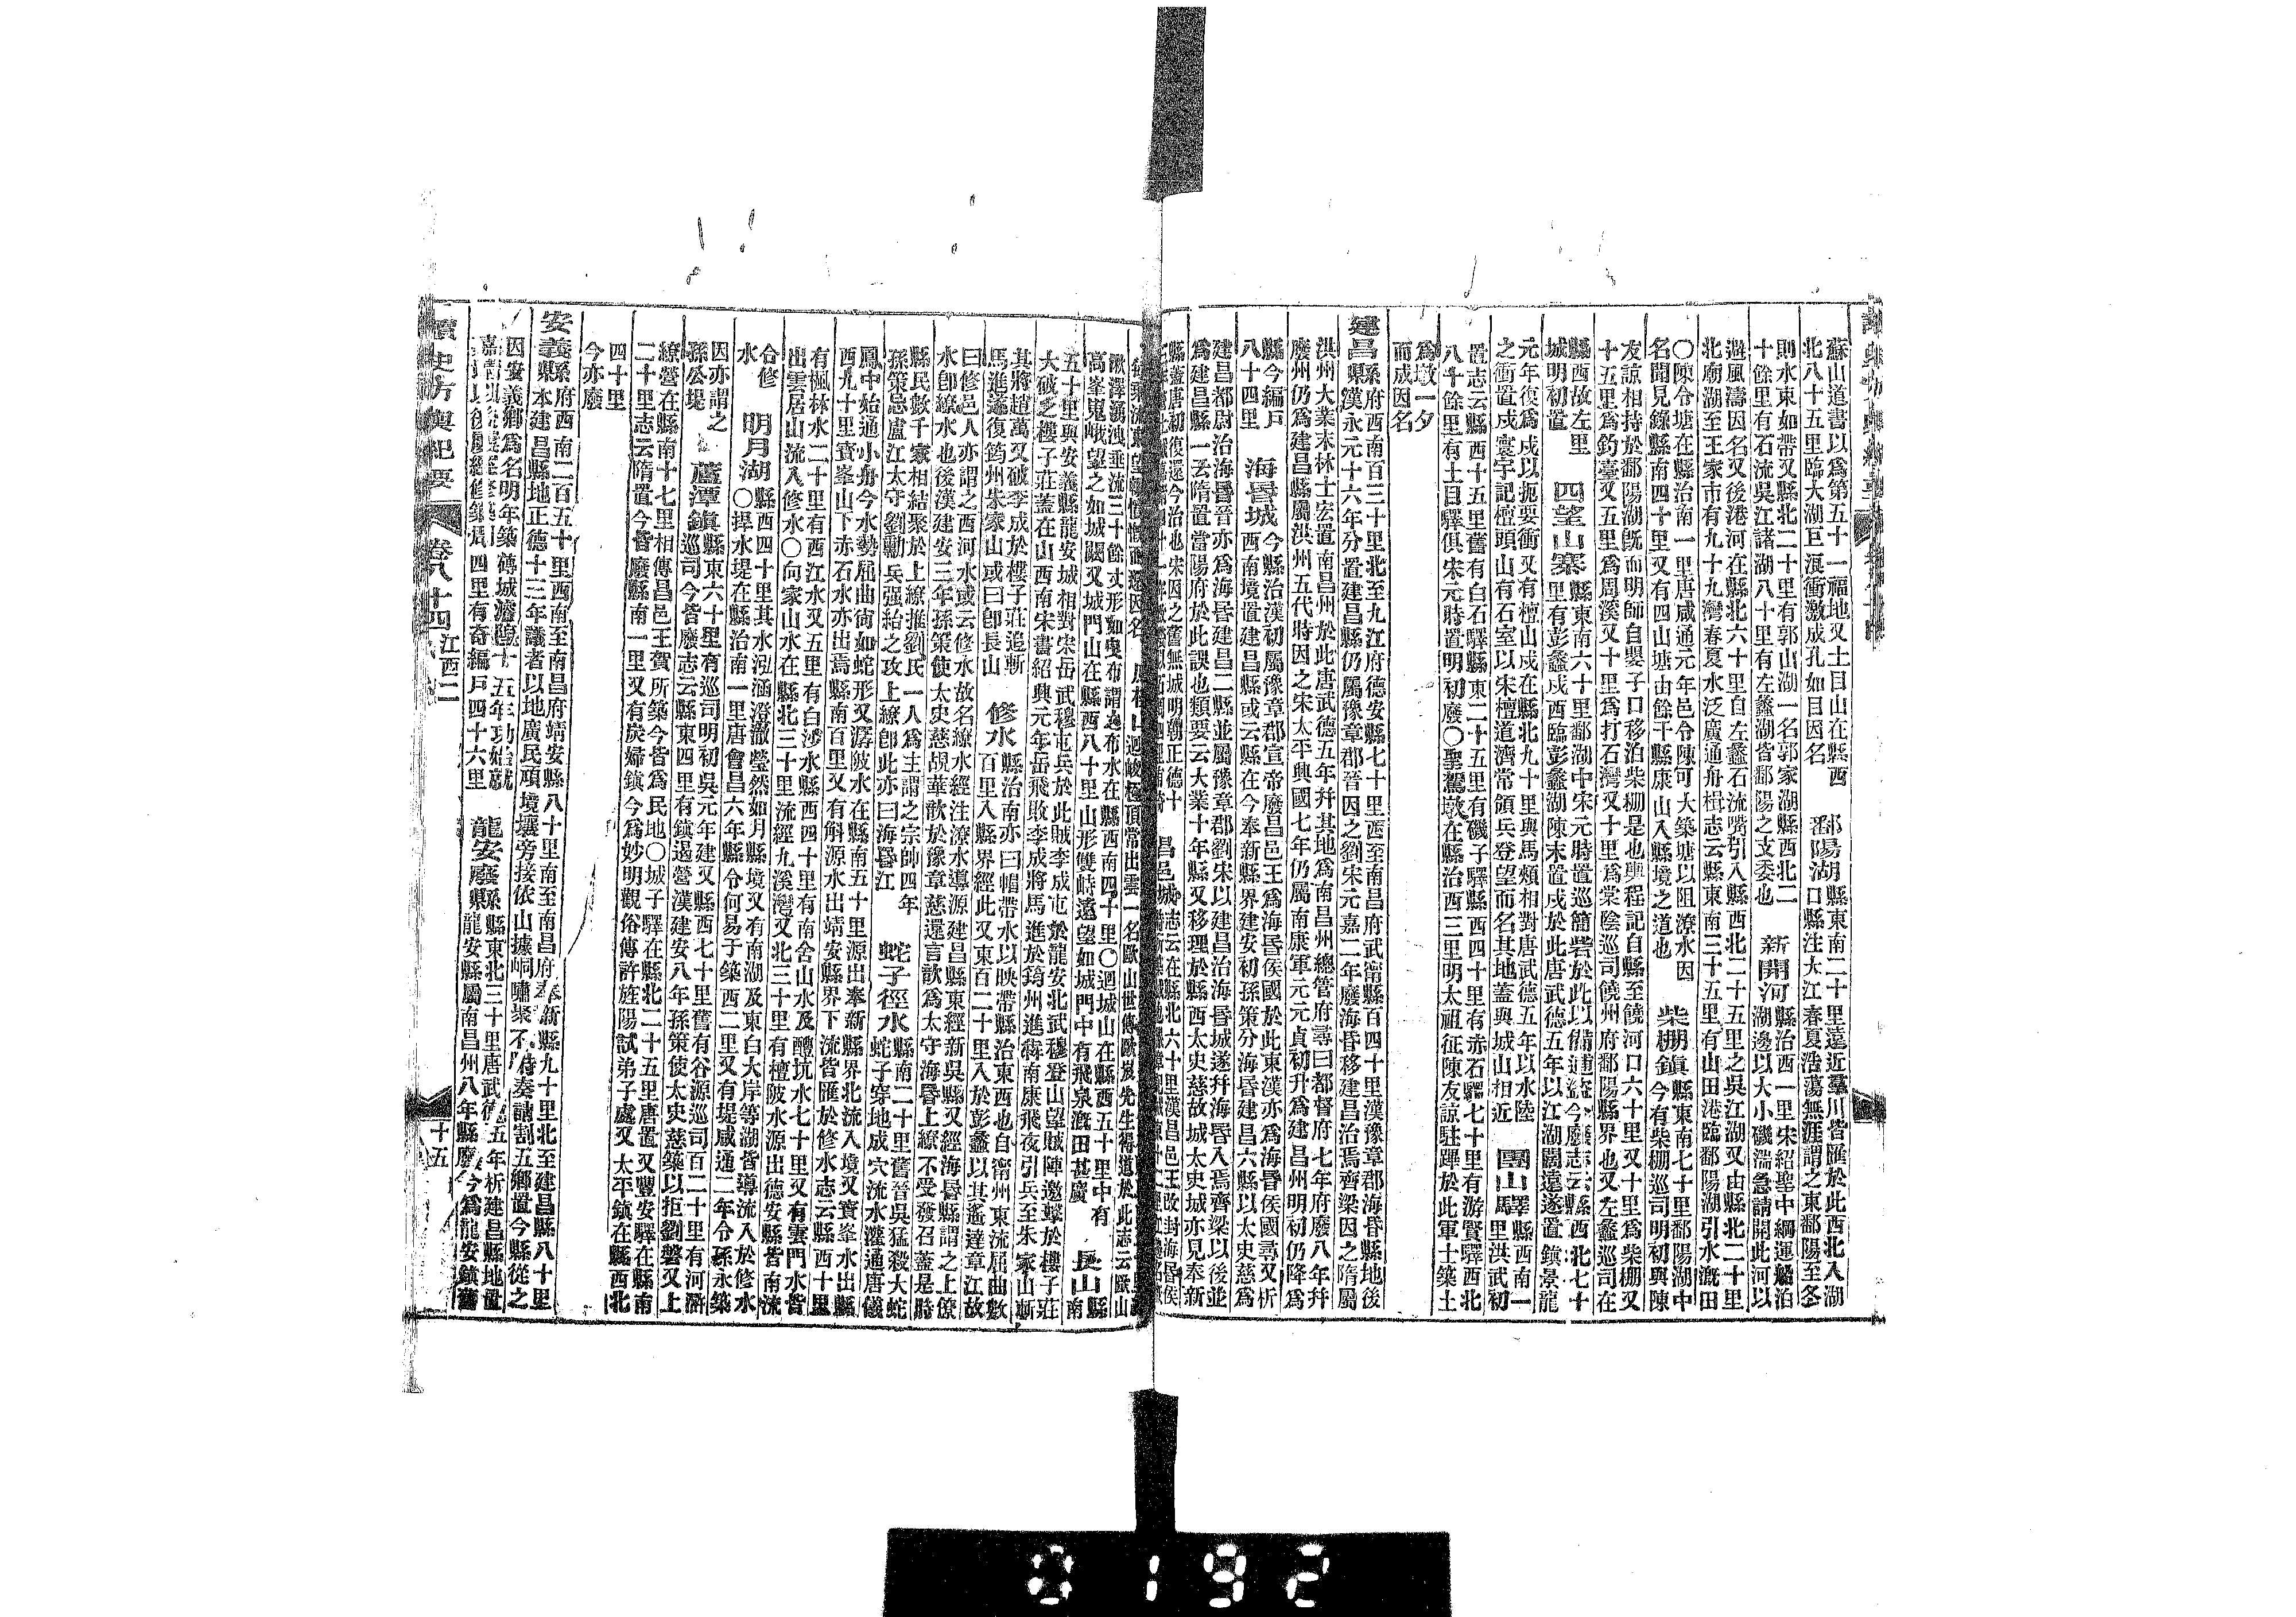 蘇山道書以爲第五十一福地又土目山在縣西
北八十五里臨大湖巨浪衝激成孔如目因名
鄱陽湖
縣東南二十里遠近羣川皆匯於此西北入湖
口縣注大江春夏浩蕩無涯謂之東鄱陽至冬
則水束如帶又縣北二十里有郭山湖一名郭家湖縣西北二
十餘里有石流吳江諸湖八十里有左蠡湖皆鄱陽之支委也
新開河
縣治西一里宋紹聖中綱運船泊
湖邊以大小磯湍急請開此河以
避風濤因名又後港河在縣北六十里自左蠡石流嘴引入縣西北二十五里之吳江湖又由縣北二十里
北廟湖至王家市有九十九灣春夏水泛廣通舟楫志云縣東南三十五里有山田港臨鄱陽湖引水漑田
〇陳令塘在縣治南一里唐咸通元年邑令陳可大築塘以阻潦水因
名聞見錄縣南四十里又有四山塘由餘干縣康山入縣境之道也
柴棚鎭
縣東南七十里鄱陽湖中
今有柴棚巡司明初與陳
友諒相持於鄱陽湖旣而明師自罌子口移泊柴棚是也輿程記自縣至饒河口六十里又十里爲柴棚又
十五里爲釣臺又五里爲周溪又十里爲打石灣又十里爲棠陰巡司饒州府鄱陽縣界也又左蠡巡司在
縣西故左里
城明初置
四望山寨
縣東南六十里鄱湖中宋元時置巡簡砦於此以備逋盜今廢志云縣西北七十
里有彭蠡戍西臨彭蠡湖陳末置戍於此唐武德五年以江湖闊遠遂置鎭景龍
元年復爲戍以扼要衝又有檀山戍在縣北九十里與馬頰相對唐武德五年以水陸
之衝置戍寰宇記檀頭山有石室以宋檀道濟常領兵登望而名其地蓋與城山相近
團山驛
縣西南一
里洪武初
置志云縣西十五里舊有白石驛縣東二十五里有磯子驛縣西四十里有赤石驛七十里有游賢驛西北
八十餘里有土目驛俱宋元時置明初廢〇聖駕墩在縣治西三里明太祖征陳友諒駐蹕於此軍士築土
爲墩一夕
而成因名
建昌縣
府西南百三十里北至九江府德安縣七十里西至南昌府武甯縣百四十里漢豫章郡海昏縣地後
漢永元十六年分置建昌縣仍屬豫章郡晉因之劉宋元嘉二年廢海昏移建昌治焉齊梁因之隋屬
洪州大業末林士宏置南昌州於此唐武德五年幷其地爲南昌州總管府尋曰都督府七年府廢八年幷
廢州仍爲建昌縣屬洪州五代時因之宋太平興國七年仍屬南康軍元元貞初升爲建昌州明初仍降爲
縣今編戶
八十四里
海昏城
今縣治漢初屬豫章郡宣帝廢昌邑王爲海昏侯國於此東漢亦爲海昏侯國尋又析
西南境置建昌縣或云縣在今奉新縣界建安初孫策分海昏建昌六縣以太史慈爲
建昌都尉治海昏晉亦爲海昏建昌二縣並屬豫章郡劉宋以建昌治海昏城遂幷海昏入焉齊梁以後並
爲建昌縣一云隋置當陽府於此誤也類要云大業十年縣又移理於縣西太史慈故城太史城亦見奉新
縣蓋唐初復還今治也宋因之舊無城明朝正德十
昌邑城
志云在縣北六十里漢昌邑王改封海昏侯
一名歐山世傳歐岌先生得道於此志云歐山
湫澤湧洩垂流三十餘丈形如曳布謂之布水在縣西南四十里〇迴城山在縣西五十里中有
高峯嵬峨望之如城闕又城門山在縣西八十里山形雙峙遠望如城門中有飛泉漑田甚廣
長山
縣
南
五十里與安義縣龍安城相對宋岳武穆屯兵於此賊李成屯於龍安北武穆登山望賊陣邀擊於樓子莊
大破之樓子莊蓋在山西南宋書紹興元年岳飛敗李成將馬進於筠州進犇南康飛夜引兵至朱家山斬
其將趙萬又破李成於樓子莊追斬
馬進遂復筠州朱家山或曰卽長山
修水
縣治南亦曰帽帶水以映帶縣治東西也自甯州東流屈曲數
百里入縣界經此又東百二十里入於彭蠡以其遙達章江故
曰修邑人亦謂之西河水或云修水故名繚水經注潦水導源建昌縣東經新吳縣又經海昏縣謂之上僚
水卽繚水也後漢建安三年孫策使太史慈覘華歆於豫章慈還言歆爲太守海昏上繚不受發召蓋是時
縣民數千家相結聚於上繚推劉氏一人爲主謂之宗帥四年
孫策忌廬江太守劉勳兵强紿之攻上繚卽此亦曰海昏江
蛇子徑水
縣南二十里舊晉吳猛殺大蛇
蛇子穿地成穴流水灌通唐儀
鳳中始通小舟今水勢屈曲尙如蛇形又潺陂水在縣南五十里源出奉新縣界北流入境又寶峯水出縣
西九十里寶峯山下赤石水亦出焉縣南百里又有斛源水出靖安縣界下流皆匯於修水志云縣西十里
有楓林水二十里有西江水又五里有白涉水縣西四十里有南舍山水及醴坑水七十里又有雲門水皆
出雲居山流入修水〇向家山水在縣北三十里流經九溪灣又北三十里有檀陂水源出德安縣皆南流
合修
水
明月湖
縣西四十里其水泓涵澄澈瑩然如月縣境又有南湖及東白大岸等湖皆導流入於修水
〇捍水堤在縣治南一里唐會昌六年縣令何易于築西二里又有堤咸通二年令孫永築
因亦謂之
孫公堤
蘆潭鎭
縣東六十里有巡司明初吳元年建又縣西七十里舊有谷源巡司百二十里有河滸
巡司今皆廢志云縣東四里有鎭遏營漢建安八年孫策使太史慈築以拒劉磐又上
繚營在縣南十七里相傳昌邑王賀所築今皆爲民地〇城子驛在縣北二十五里唐置又豐安驛在縣南
二十里志云隋置今皆廢縣南一里又有炭婦鎭今爲妙明觀俗傳許旌陽試弟子處又太平鎭在縣西北
四十里
今亦廢
安義縣
府西南二百五十里西南至南昌府靖安縣八十里南至南昌府奉新縣九十里北至建昌縣八十里
本建昌縣地正德十三年議者以地廣民頑境壤旁接依山據峒嘯聚不時奏請割五鄉置今縣從之
因安義鄉爲名明年築磚城濬隍十五年功始就
四里有奇編戶四十六里
龍安廢縣
縣東北三十里唐武德五年析建昌縣地置
龍安縣屬南昌州八年縣廢今爲龍安鎭舊
讀史方輿紀要
卷八十四
江西二
十五
0192